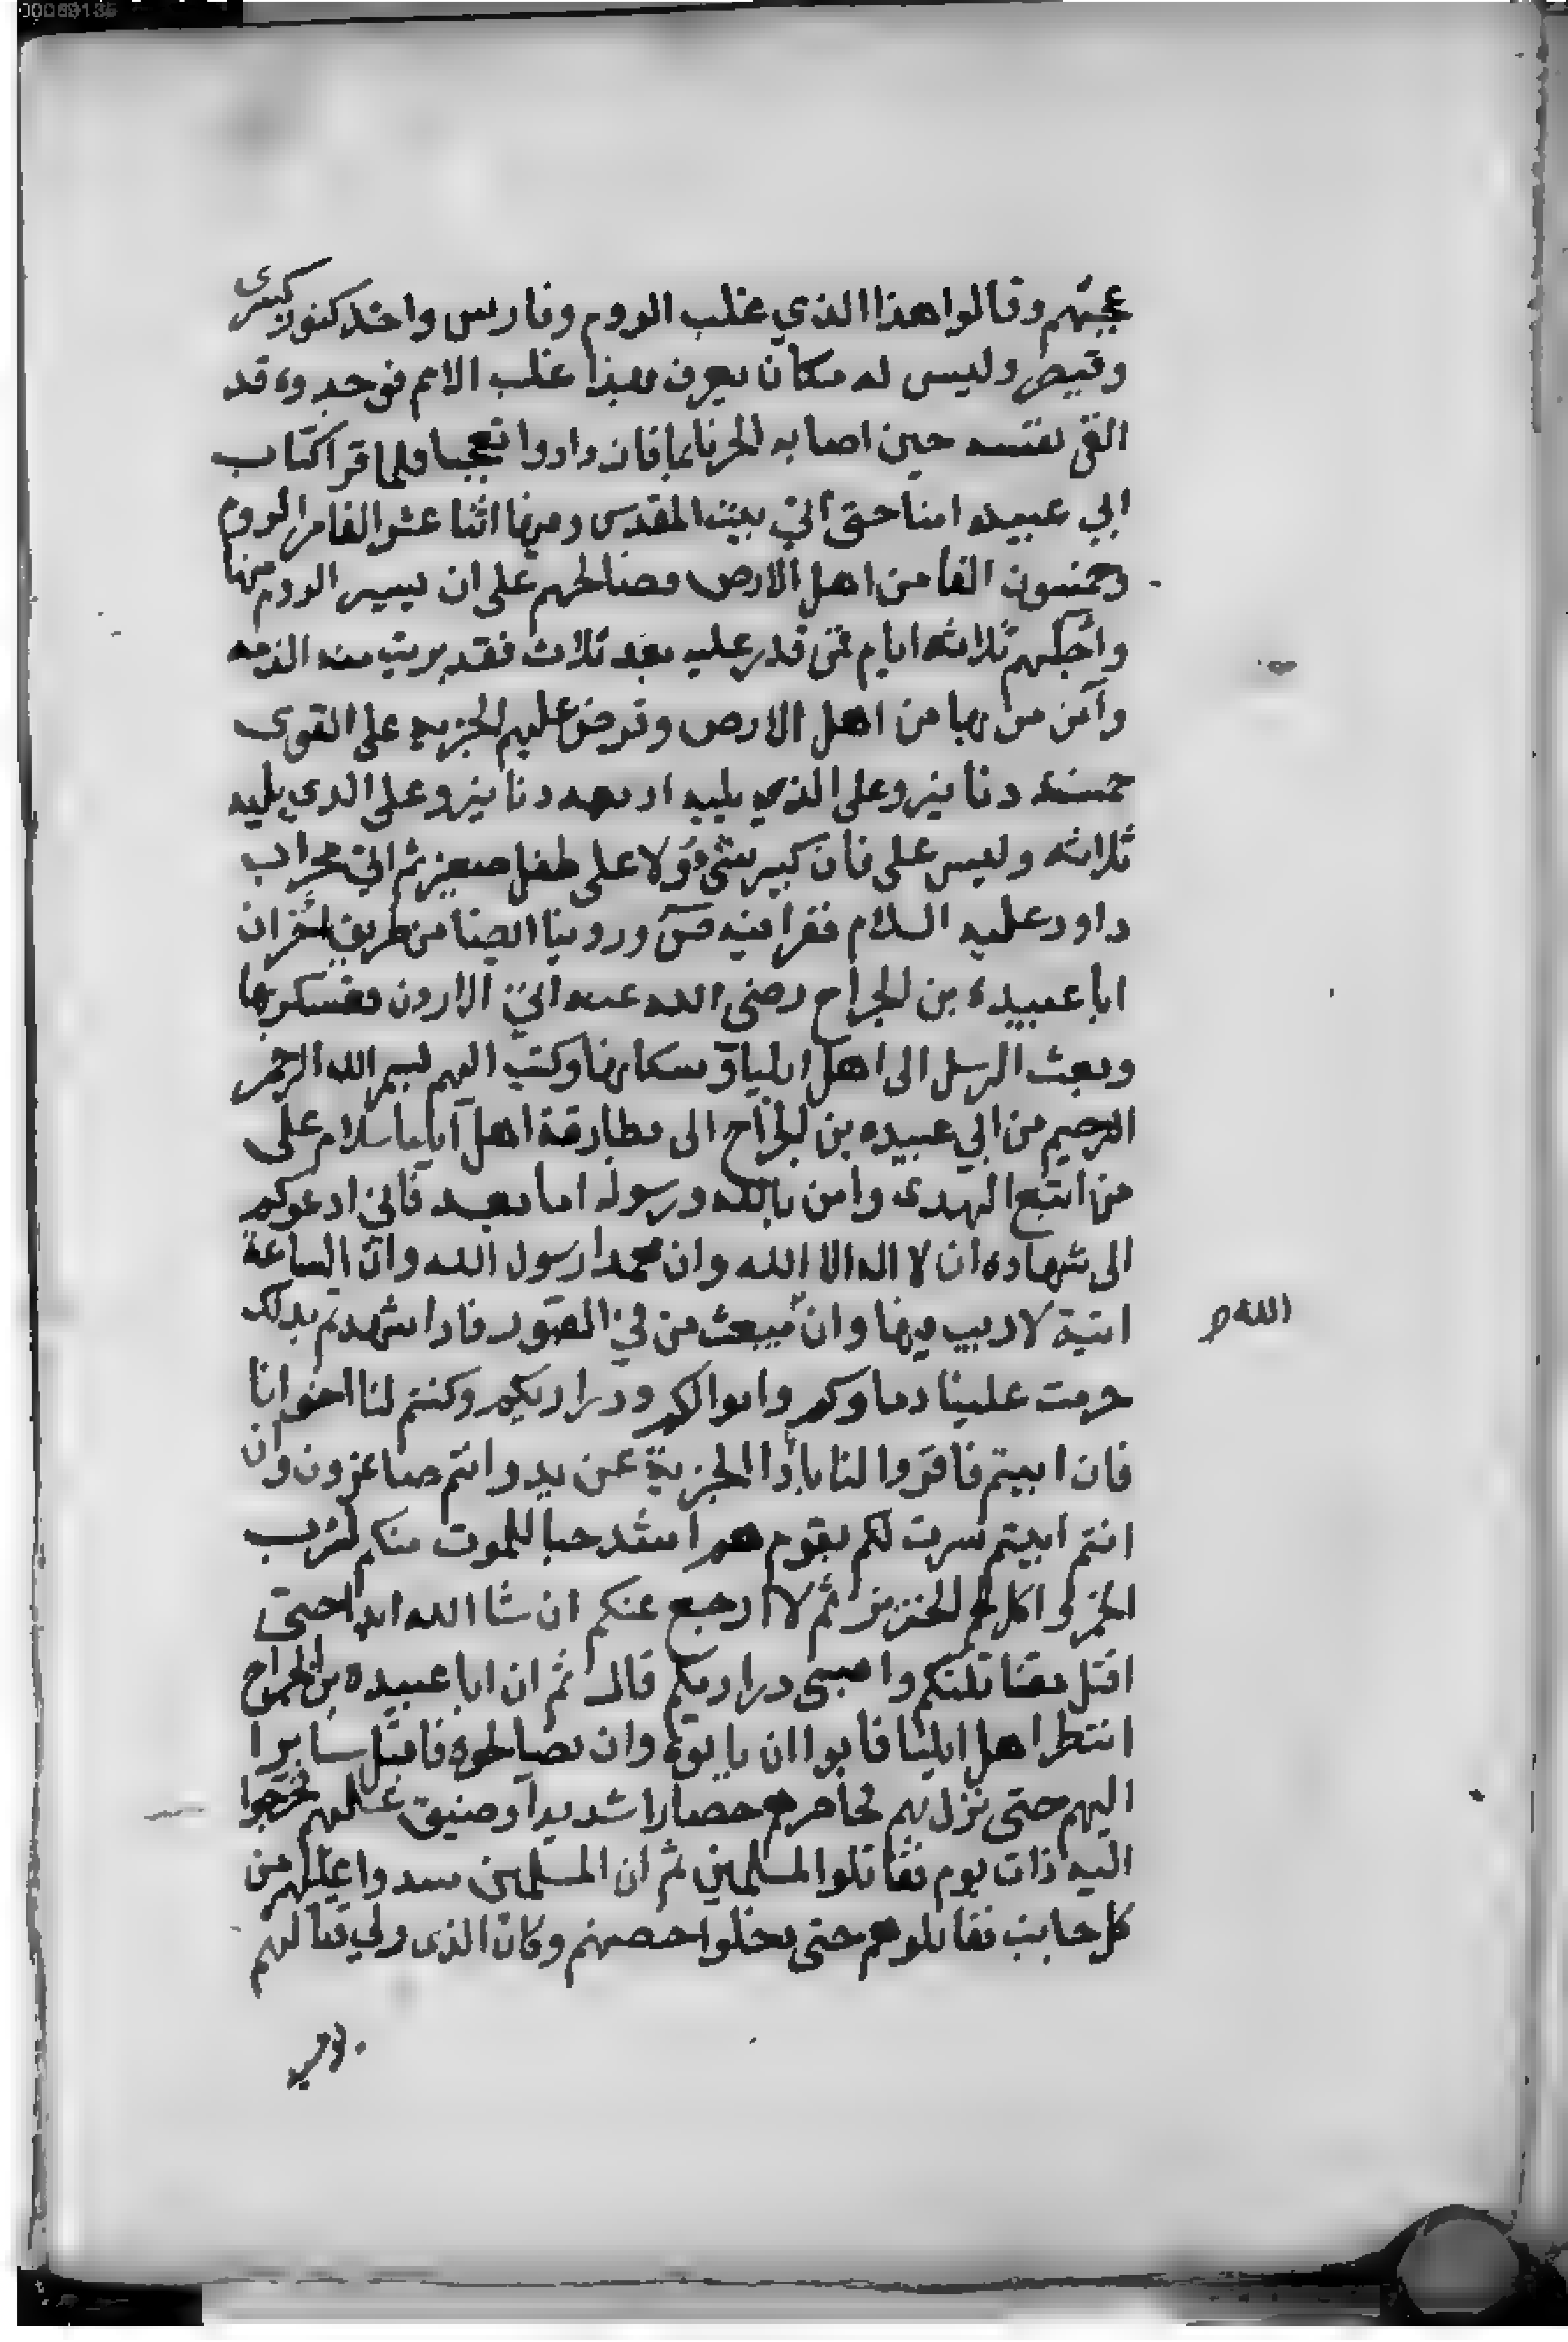 عجبهم وقالوا هذا الذي غلب الروم وفارس واخذ كنوز كسرى
وقيصر وليس له مكان يعرف بهذا غلب الامم فوجدوه قد
القى نفسه حين اصابه الحر نايما فازدادوا تعجبا فلما قرا كتاب
ابي عبيده امنا حتى اتى بيت المقدس وفيها اثنا عشر الفا من الروم
وخمسون الفا من اهل الارض فصالحهم على ان يسير الروم منها
واجلهم ثلاثه ايام فمن قدر عليه بعد ثلاث فقد بريت منه الذمه
وآمن من بها من اهل الارض وفرض عليهم الجزيه على القوى
خمسة دنانير وعلى الذي يليه اربعه دنانير وعلى الدى يليه
ثلاثه وليس على فان كبير شى ولا على طفل صغير ثم اتى محراب
داود عليه السلام فقرا فيه ص وروينا ايضا من طريق اخر ان
ابا عبيدة بن الجراح رضى الله عنه اتى الاردن فعسكر بها
وبعث الرسل الى اهل ايليا وسكانها وكتب اليهم بسم الله الرحمن
الرحيم من ابي عبيده بن الجراح الى بطارقة اهل ايليا سلام على
من اتبع الهدى وامن بالله ورسوله اما بعد فاني ادعوكم
الى شهاده ان لا اله الا الله وان محمدا رسول الله وان الساعة
اتية لا ريب فيها وان يبعث من في القبور فادا شهدتم بدلك
الله
حرمت علينا دماوكم واموالكم ودراريكم وكنتم لنا اخوانا
فان ابيتم فاقروا لنا باداٴ الجزية عن يد وانتم صاغرون وان
انتم ابيتم سرت لكم بقوم هم اشد حبا للموت منكم لشرب
الخمر واكل لحم الخنزير ثم لا ارجع عنكم ان شا الله ابدا حتى
اقتل مقاتلتكم واسبى دراريكم قال ثم ان ابا عبيده بن الجراح
انتطر اهل ايليا فابوا ان ياتوه وان يصالحوه فاقبل سايرا
اليهم حتى نزل بهم فحاصرهم حصارا شديدا وضيق عليهم فخرجوا
اليه ذات يوم فقاتلوا المسلمين ثم ان المسلمين سدوا عليهم من
كل جانب فقاتلوهم حتى دخلوا حصنهم وكان الذى ولي قتالهم